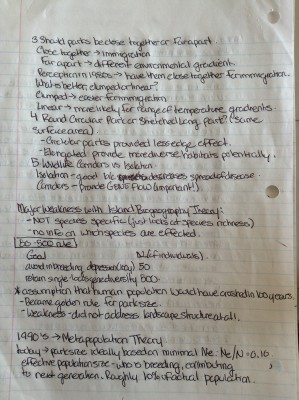 3 Should parks be close together or far apart.
Close together → immigration
Far apart → different environmental gradient.
Perception in 1980s → have them close together for immigration.
What's better, clumped or linear?
Clumped → easier for immigration
Linear → more likely for range of temperature gradients.
4 Round Circular Park or Stretched Long park? (Same
surface area)
- Circular parks provided less edge effect.
- Elongated provide more diverse habitats potentially.
5 Wildlife Corridors vs Isolation
Isolation = good b/c decreases spread of disease.
Corridors = provide GENE FLOW (important!)
Major Weakness with Island Biogeography Theory:
- NOT species specific (just looks at species richness)
- no info on which species are effected.
50-500 rule
Goal N (# of individuals)
avoid inbreeding depression 50
retain single locus gene diversity 500
* assumption that human population would have crashed in 100 years.
- Became golden rule for park size.
- weakness - did not address landscape structure at all.
1990's → Metapopulation Theory
today → park size ideally based on minimal Ne. Ne/N = 0.10
effective population size - who is breeding, contributing
to next generation. Roughly 10% of actual population.